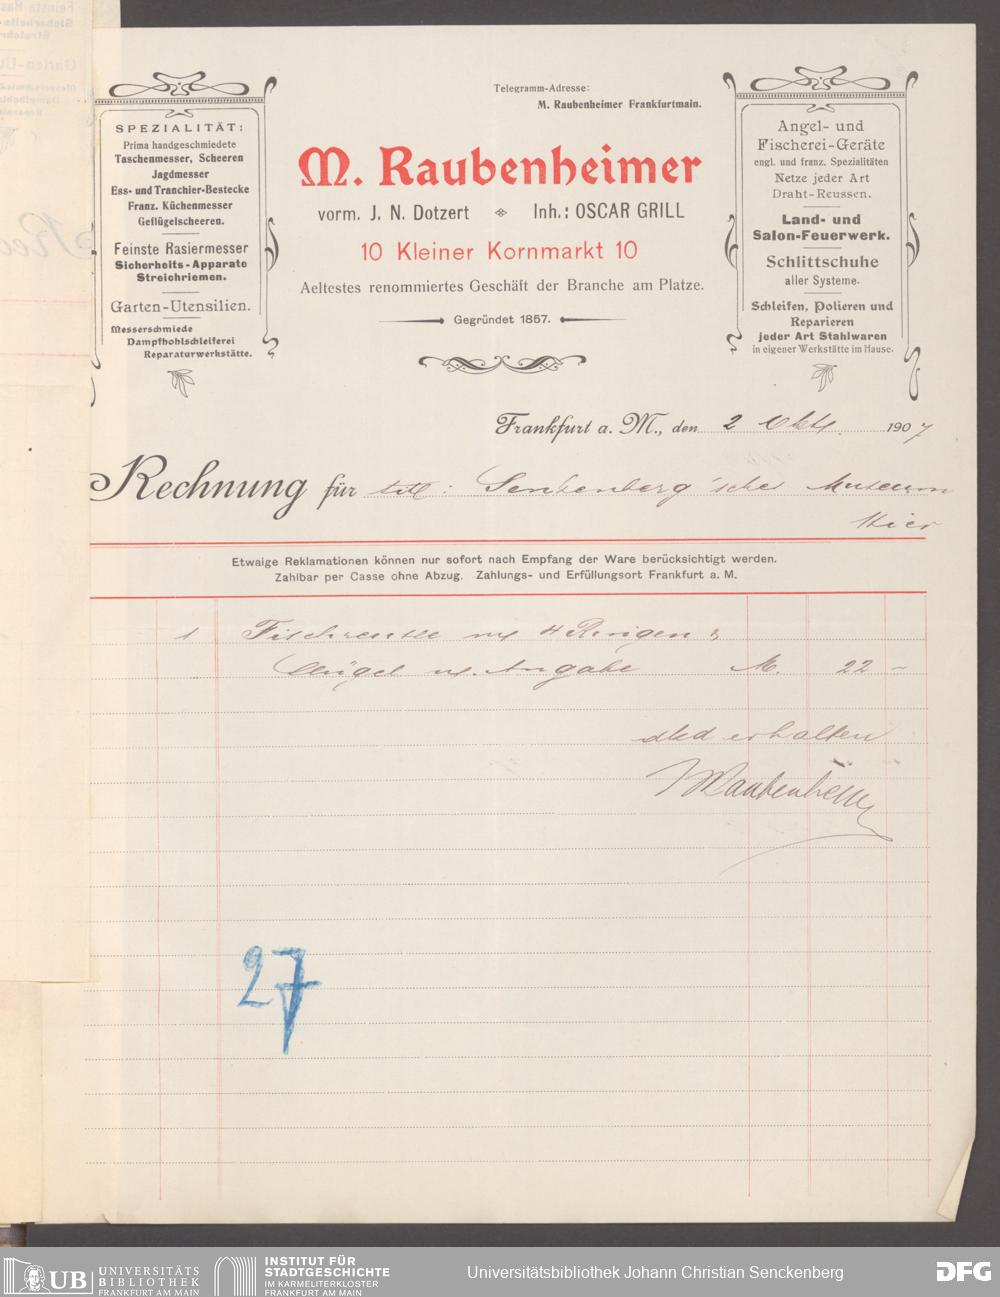 SPEZIALITÄT:
Prima handgeschmiedete
Taschenmesser, Scheeren
Jagdmesser
Ess- und Tranchier-Bestecke
Franz. Küchenmesser
Geflügelscheeren.
Feinste Rasiermesser
Sicherheits-Apparate
Streichriemen.
Garten-Utensilien.
Messerschmiede
Dampfhohlschleiferei
Reparaturwerkstätte.
Telegramm-Adresse:
M. Raubenheimer Frankfurtmain.
M. Raubenheimer
vorm. J. N. Dotzert Inh.: OSCAR GRILL
10 Kleiner Kornmarkt 10
Aeltestes renommiertes Geschäft der Branche am Platze.
Gegründet 1857.
Angel- und
Fischerei-Geräte
engl. und franz. Spezialitäten
Netze jeder Art
Draht-Reussen.
Land- und
Salon-Feuerwerk.
Schlittschuhe
aller Systeme.
Schleifen, Polieren und
Reparieren
jeder Art Stahlwaren
in eigener Werkstätte im Hause.
Frankfurt a. M., den 2 Okt. 1907
Rechnung für titl: Senkenberg'sches Museum
Hier
Etwaige Reklamationen können nur sofort nach Empfang der Ware berücksichtigt werden.
Zahlbar per Casse ohne Abzug. Zahlungs- und Erfüllungsort Frankfurt a. M.
1 Fischreuse m 4 Ringen &
n. Angabe M. 22 –
erhalten
MRaubenheimer
27
UB UNIVERSITÄTS
BIBLIOTHEK
FRANKFURT AM MAIN
INSTITUT FÜR
STADTGESCHICHTE
IM KARMELITERKLOSTER
FRANKFURT AM MAIN
Universitätsbibliothek Johann Christian Senckenberg
DFG